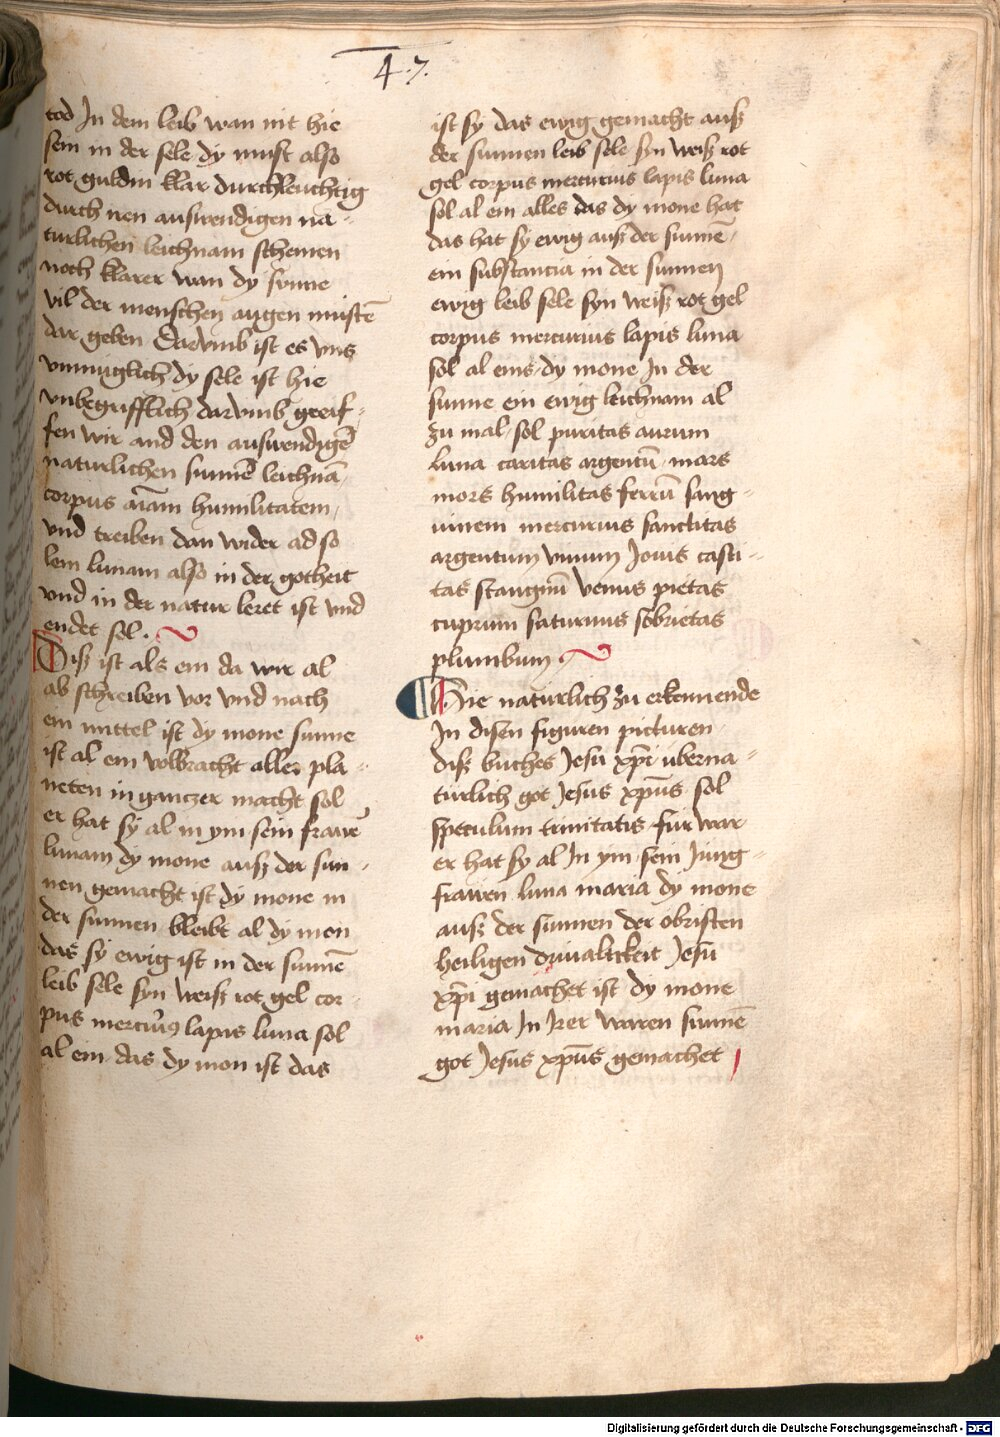 47.
tod In dem leib wan nit hie
sein in der sele dy must also
rot guldin klar durchleuchtig
durch nen auswendigen na-
turlichen leichnam scheinen
noch klarer wan dy sunne
vil der menschen augen mustē
dar geben Darvmb ist es vns
vnmuglich dy sele ist hie
vnbegrifflich darvmb greif-
fen wir and den auswendigē
naturlichen sunnē leichnā
corpus aīam humilitatem
vnd treiben dan wider ad so
lem lunam also in der gotheit
vnd in der natur leret ist vnd
endet sol.
Diß ist als ein da wir al
ab schreiben vor vnd nach
ein mittel ist dy mone sunne
ist al ein volbracht aller pla-
neten in ganczer macht sol
er hat sy al in ym sein frauē
lunam dy mone auß der sun-
nen gemacht ist dy mone in
der sunnen bleibt al dy mon
das sy ewig ist in der sunnē
leib sele syn weiß rot gel cor-
pus mercurius lapis luna sol
al ein das dy mon ist das
ist sy das ewig gemacht auß
der sunnen leib sele syn weiß rot
gel corpus mercurius lapis luna
sol al ein alles das dy mone hat
das hat sy ewig auß der sunne
ein substancia in der sunnen
ewig leib sele syn weiß rot gel
corpus mercurius lapis luna
sol al eins dy mone In der
sunne ein ewig leichnam al
zu mal sol puritas aurum
luna caritas argentū mars
mors humilitas ferrū sang-
uinem mercurius sanctitas
argentum viuum Jouis casti-
tas stangnū venus pietas
cuprum saturnus sobrietas
plumbum
Hie naturlich zu erkennende
In disen figuren picturen
diß buches Jesu xp̄i uberna-
turlich got Jesus xp̄us sol
speculum trinitatis fur war
er hat sy al In ym sein Jung-
frauen luna maria dy mone
auß der sunnen der obristen
heiligen driualtickeit Jesu
xp̄i gemachet ist dy mone
maria In Irer waren sunnē
got Jesus xp̄us gemachet
Digitalisierung gefördert durch die Deutsche Forschungsgemeinschaft - DFG